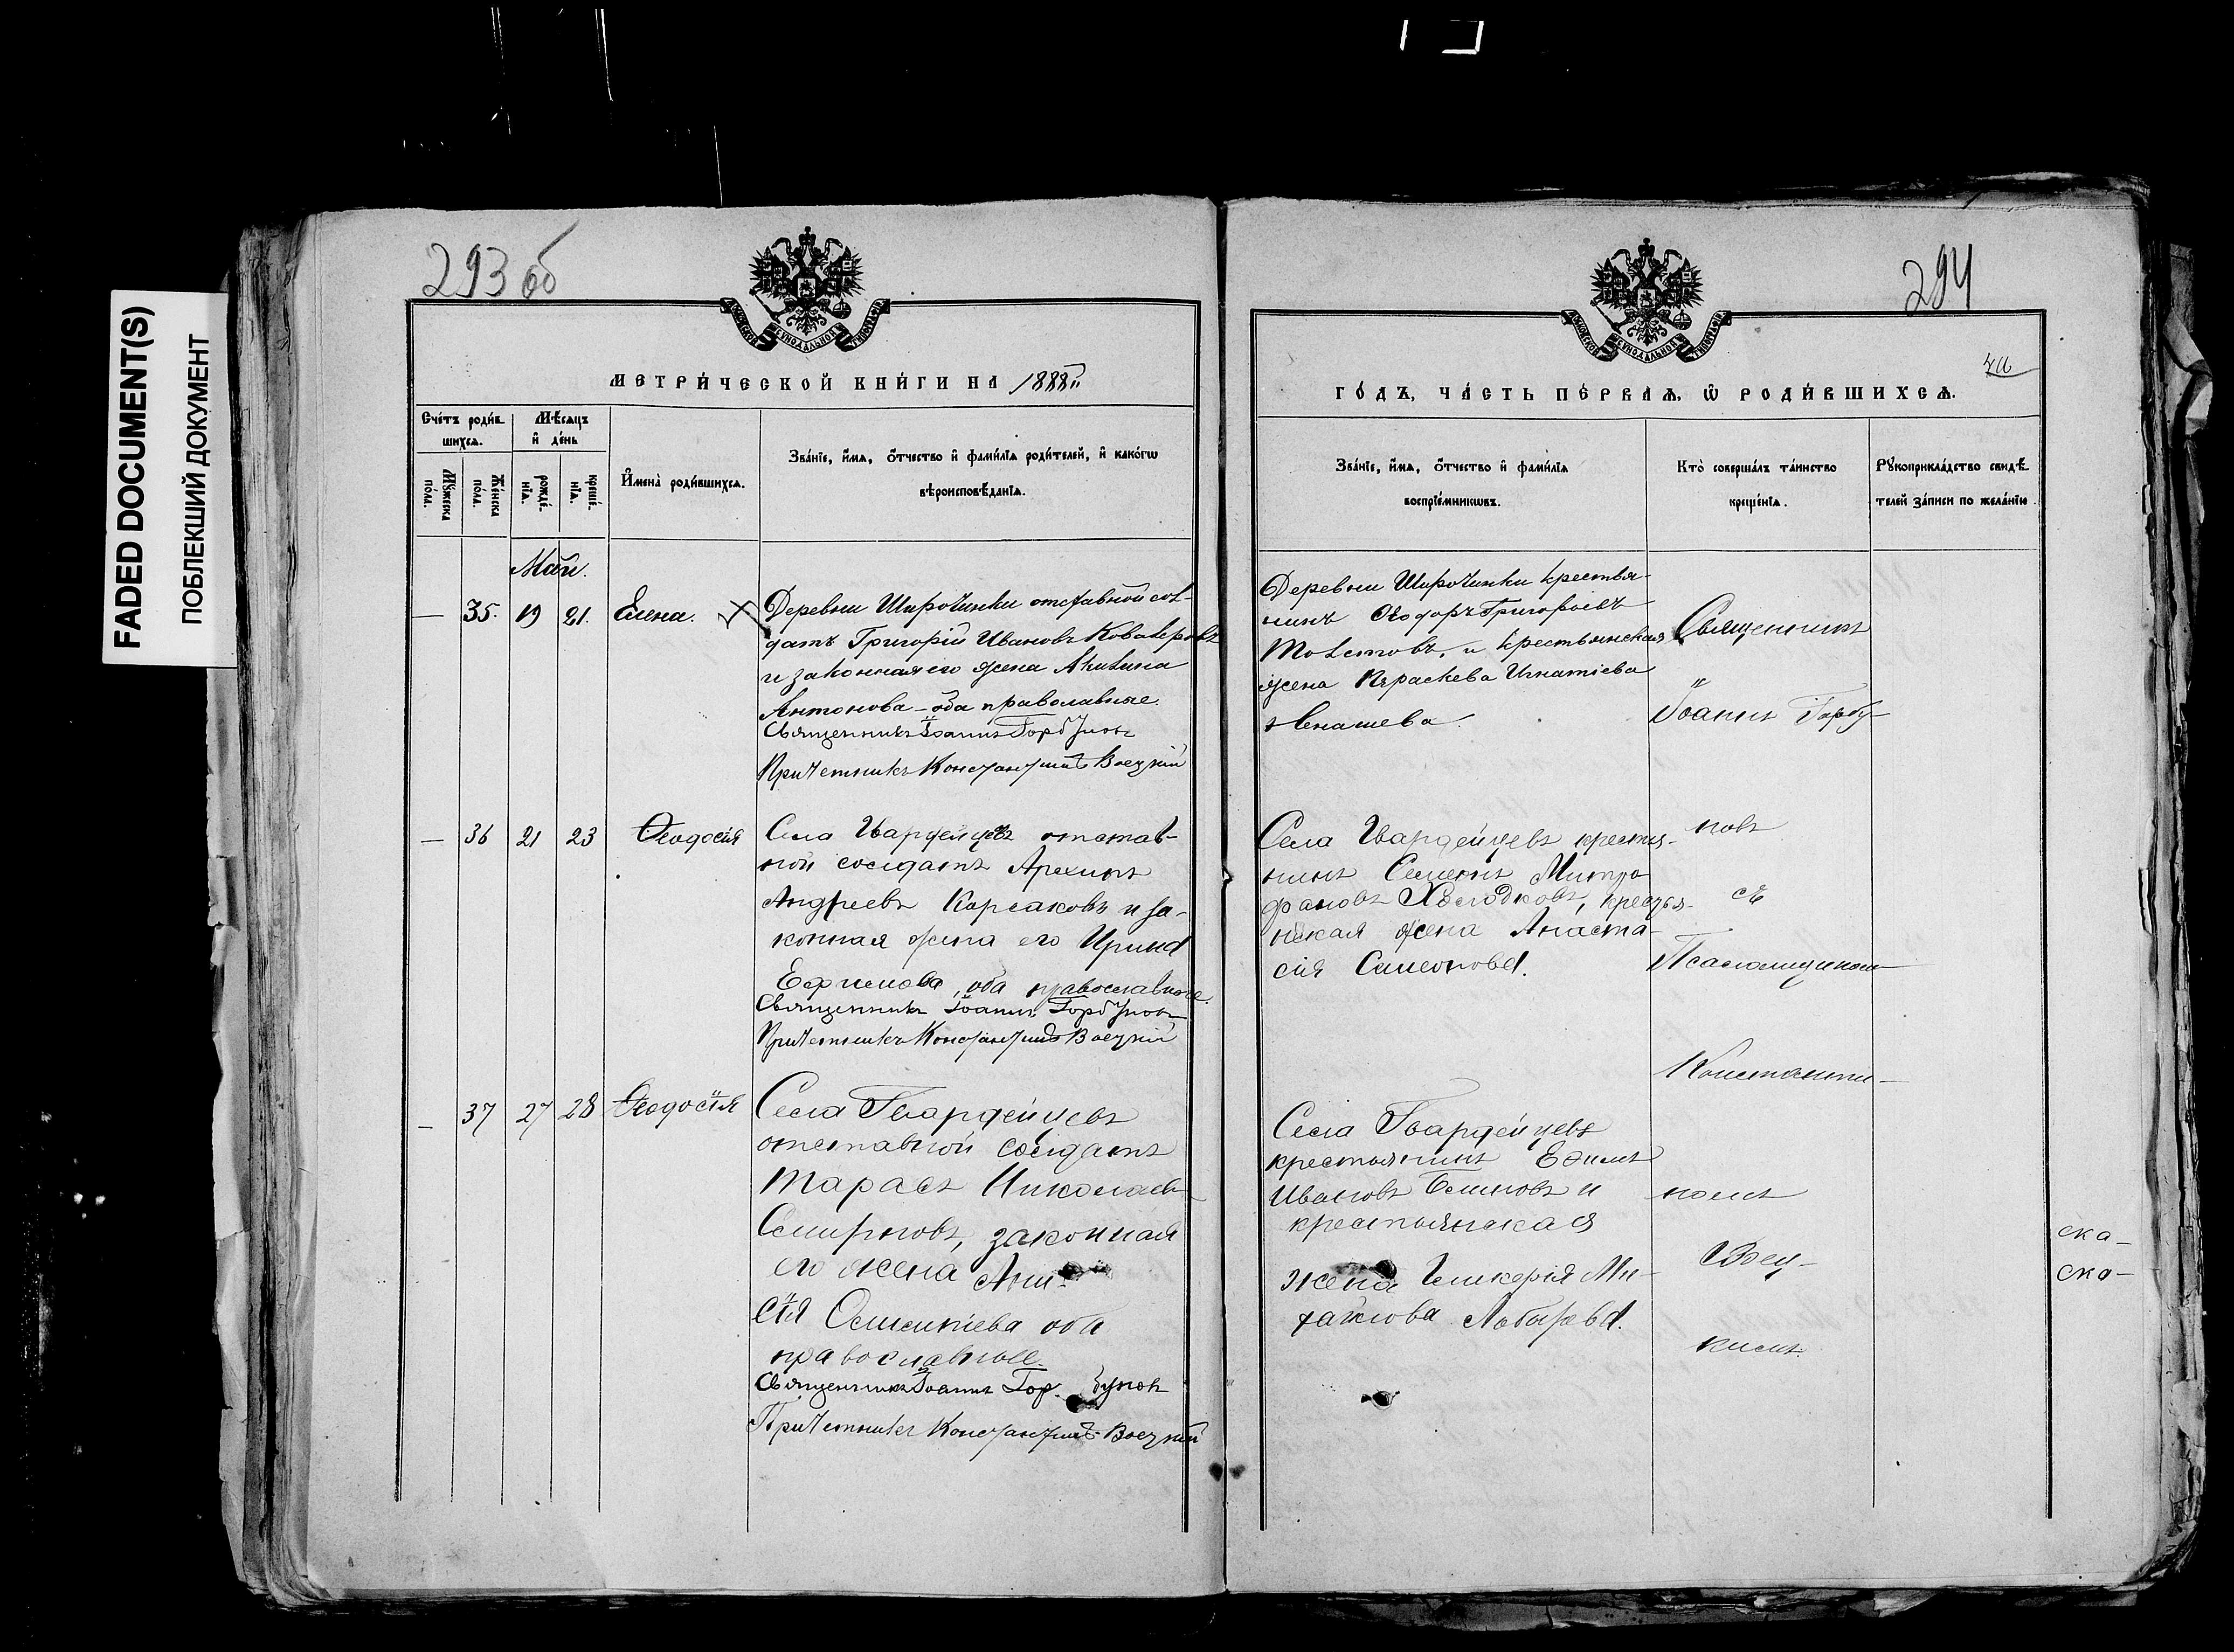 FADED DOCUMENT(S)
ПОБЛЕКШИЙ ДОКУМЕНТ
293 об
МЕТРИ́ЧЕСКОЙ КНИ́ГИ НА 1888
Сче́тъ роди́в-
шихсѧ.
Мѣ́сѧцъ
и҆ де́нь
Мꙋ́жеска
по́ла.
Же́нска
по́ла.
рожде́-
нїѧ.
креще́-
нїѧ.
И҆мена̀ роди́вшихсѧ.
Зва́нїе, и҆́мѧ, о҆́тчество и҆ фами́лїѧ роди́телей, и҆ како́гѡ
вѣроисповѣ́данїѧ.
Май.
— 35. 19 21. Елена.
Деревни Широчинки отставной сол-
датъ Григорій Ивановъ
и законная его жена Акилина
Антонова – оба православные.
Священникъ Іоаннъ Горбуновъ
Причетникъ Константинъ Воецкій
— 36 21 23 Ѳеодосія
Села Гвардейцевъ отстав-
ной солдатъ Архипъ
Андреевъ Корсаковъ и за-
конная жена его Ирина
Ефимова, оба православные.
Священникъ Іоаннъ Горбуновъ
Причетникъ Константинъ Воецкій
— 37 27 28 Ѳеодосія
Села Гвардейцевъ
отставной солдатъ
Тарасъ Николаевъ
Смирновъ, законная
его жена Ани-
сія оба
православные.
Священникъ Іоаннъ Гор- буновъ
Причетникъ Константинъ Воецкій
294
ГО́ДЪ, ЧА́СТЬ ПЕ́РВАѦ, Ѽ РОДИ́ВШИХСѦ.
Зва́нїе, и҆́мѧ, о҆́тчество и҆ фами́лїѧ
воспрїе́мникѡвъ.
Кто̀ соверша́лъ та́инство
креще́нїѧ.
Рꙋкоприкла́дство свидѣ́-
телей за́писи по жела́нїю
Деревни Широчинки крестья-
нинъ Ѳеодоръ Григорьевъ
Толстовъ, и крестьянская
жена Параскева Игнатіева
Священникъ
Іоаннъ Горбу-
Села Гвардейцевъ крестья-
нинъ Семенъ Митро-
фановъ Холодковъ, крестья-
нская жена Анаста-
сія Симеонова.
новъ
съ
Псаломщикомъ
Константи-
Села Гвардейцевъ
крестьянинъ Ефимъ
Ивановъ и
крестьянская
жена Гликерія Ми-
хайлова
номъ
Воец-
кимъ.
ска-
ска-